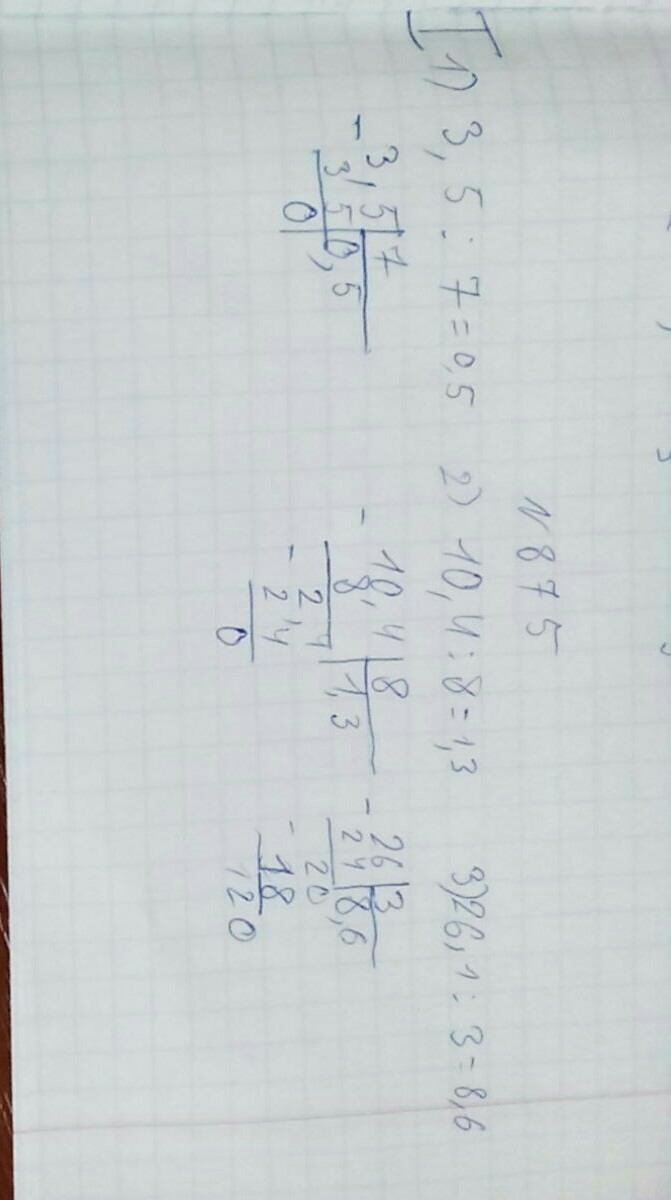 N 875
I 1) 3,5 : 7 = 0,5 2) 10,4 : 8 = 1,3 3) 26,1 : 3 = 8,6
- 3,5 | 7
3 5 | 0,5
0
- 10,4 | 8
8 | 1,3
- 2 4
2 4
0
- 26 | 3
24 | 8,6
- 20
18
20